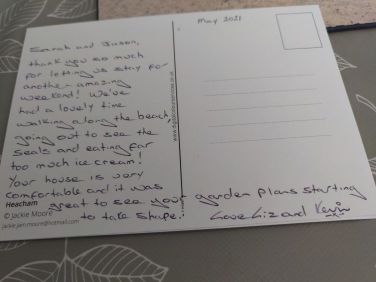 May 2021
Sarah and Jason,
thank you so much
for letting us stay for
another amazing
weekend! We've
had a lovely time
walking along the beach,
going out to see the
seals and eating far
too much ice cream!
Your house is very
comfortable and it was
great to see your garden plans starting
to take shape.
Love Liz and Kevin
Heacham
© Jackie Moore